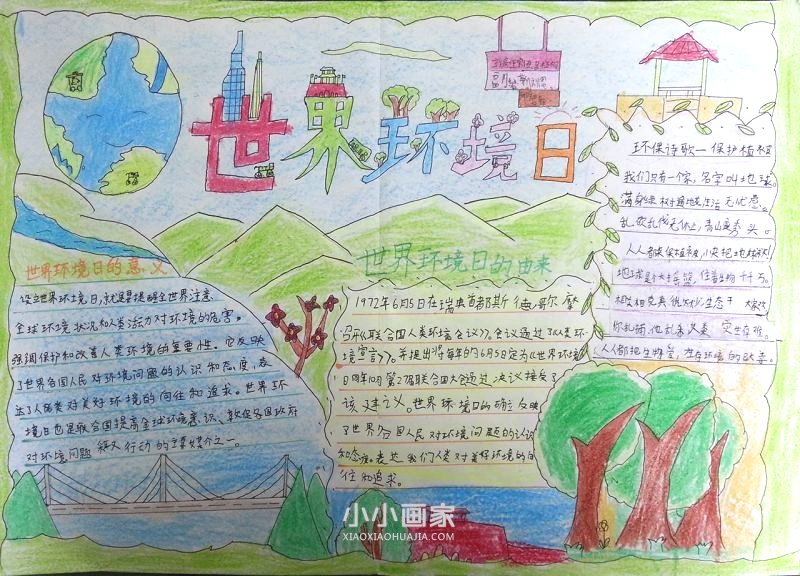 世界环境日
世界环境日的意义
设立世界环境日,就是要提醒全世界注意
全球环境状况和人类活动对环境的危害。
强调保护和改善人类环境的重要性。它反映
了世界各国人民对环境问题的认识和态度,表
达了人类对美好环境的向往和追求。世界环
境日也是联合国提高全球环境意识、敦促各国政府
对环境问题 行动的主要媒介之一。
世界环境日的由来
1972年6月5日在瑞典首都斯德哥尔摩
召开《联合国人类环境会议》。会议通过了《人类环
境宣言》。并提出将每年的6月5日定为《世界环境
日》同年10月第27届联合国大会通过决议接受了
该建议。世界环境日的确立反映
了世界各国人民对环境问题的认识
和态度。表达我们人类对美好环境的向
往和追求。
环保诗歌一保护植被
我们只有一个家,名字叫地球。
满身绿 生活无忧愁。
乱砍乱伐无休止,青山 头。
人人都要保植被,
地球是个大摇篮,住着生物千千万。
生态
生存难。
人人都把生物爱,生存环境
小小画家
XIAOXIAOHUAJIA.COM